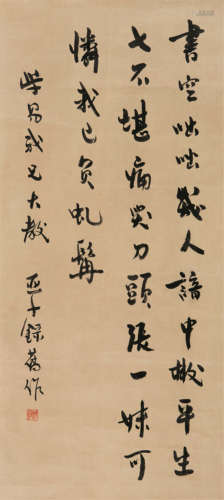 書空咄咄幾人諳中散平生
七不堪痛哭刀頭張一妹可
憐我已負虬髯
兄大教
亞子錄舊作